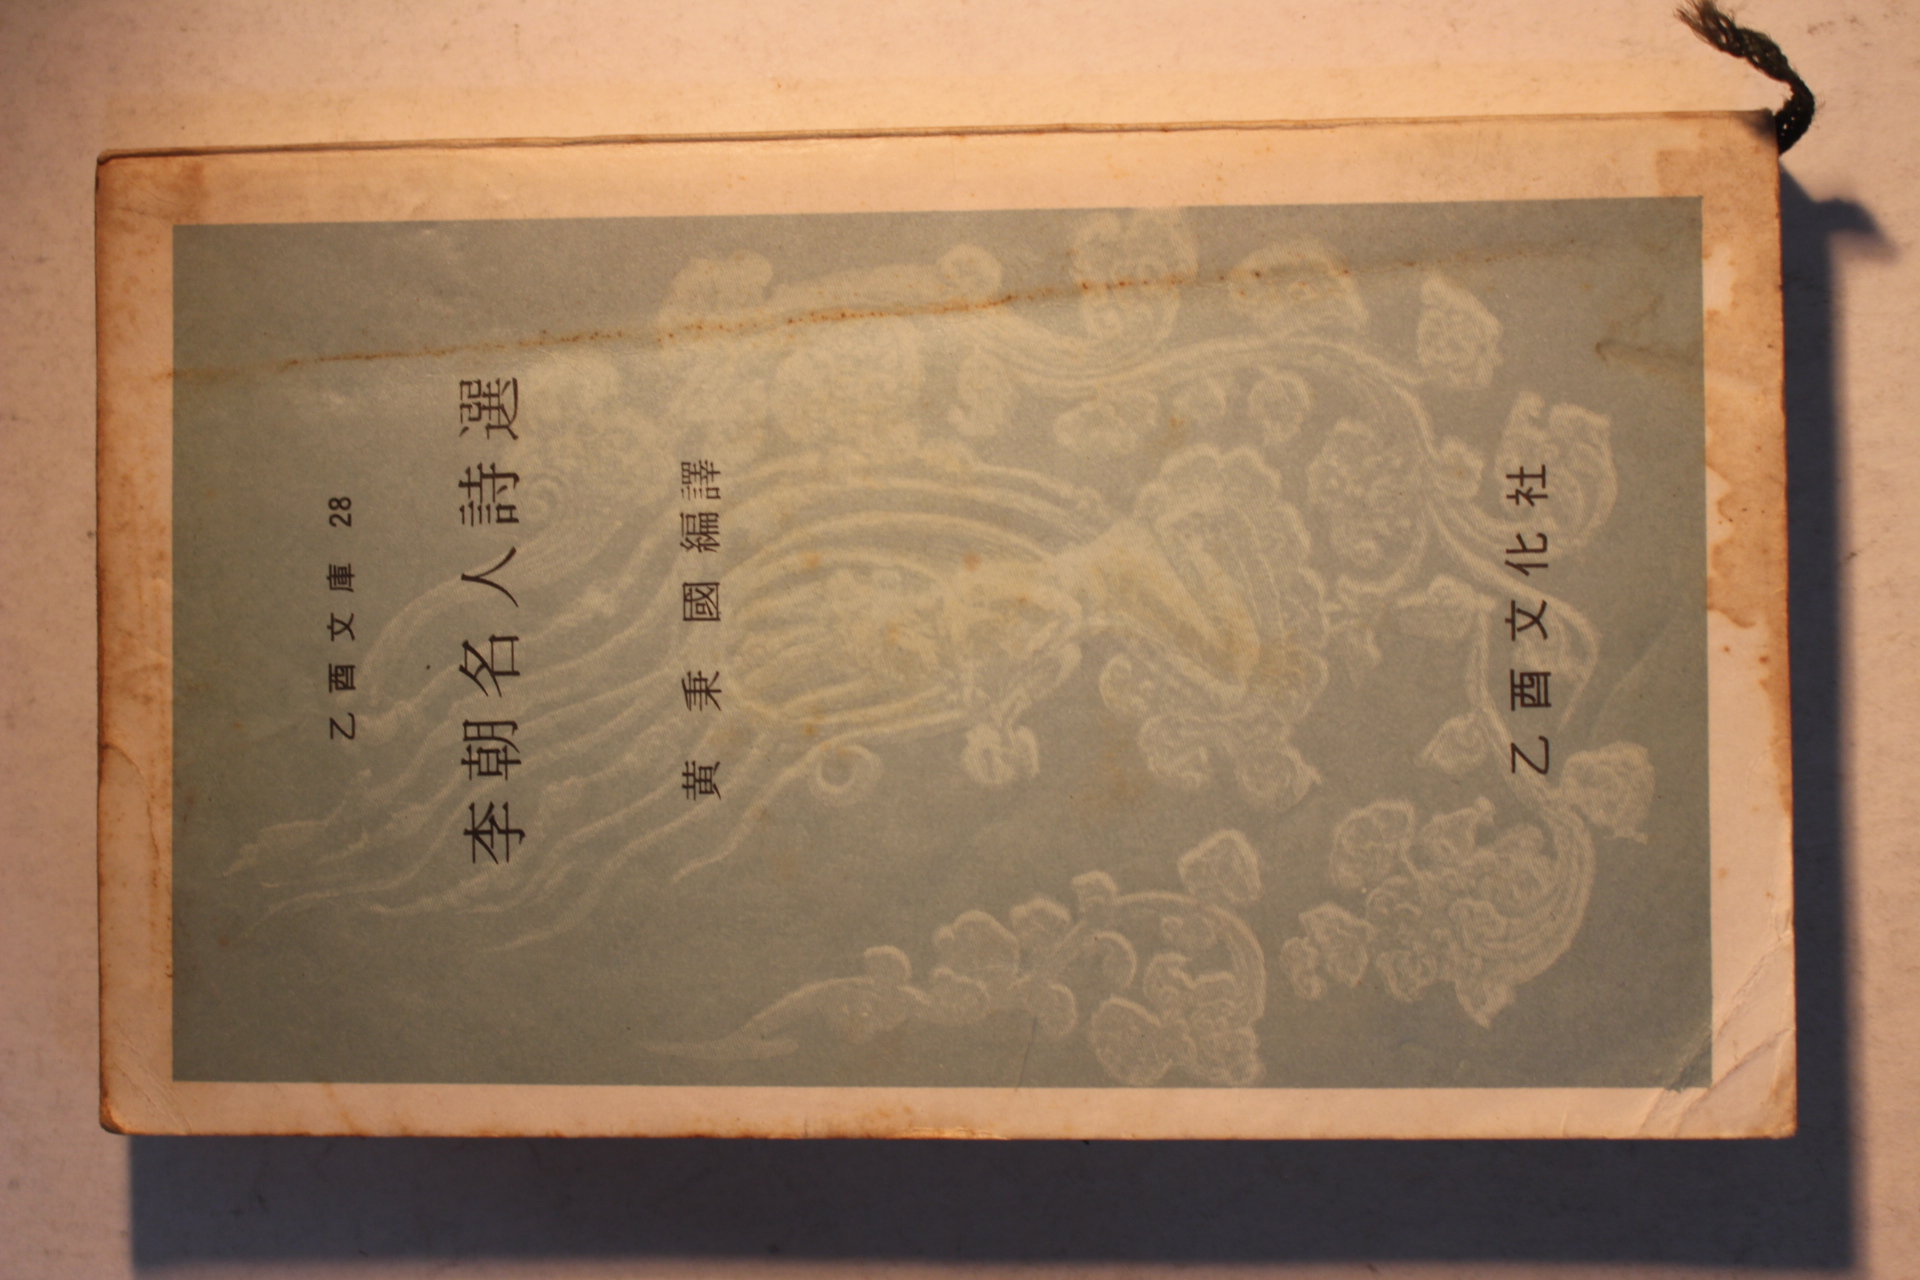 乙酉文庫 28
李朝名人詩選
黃秉國 編譯
乙酉文化社